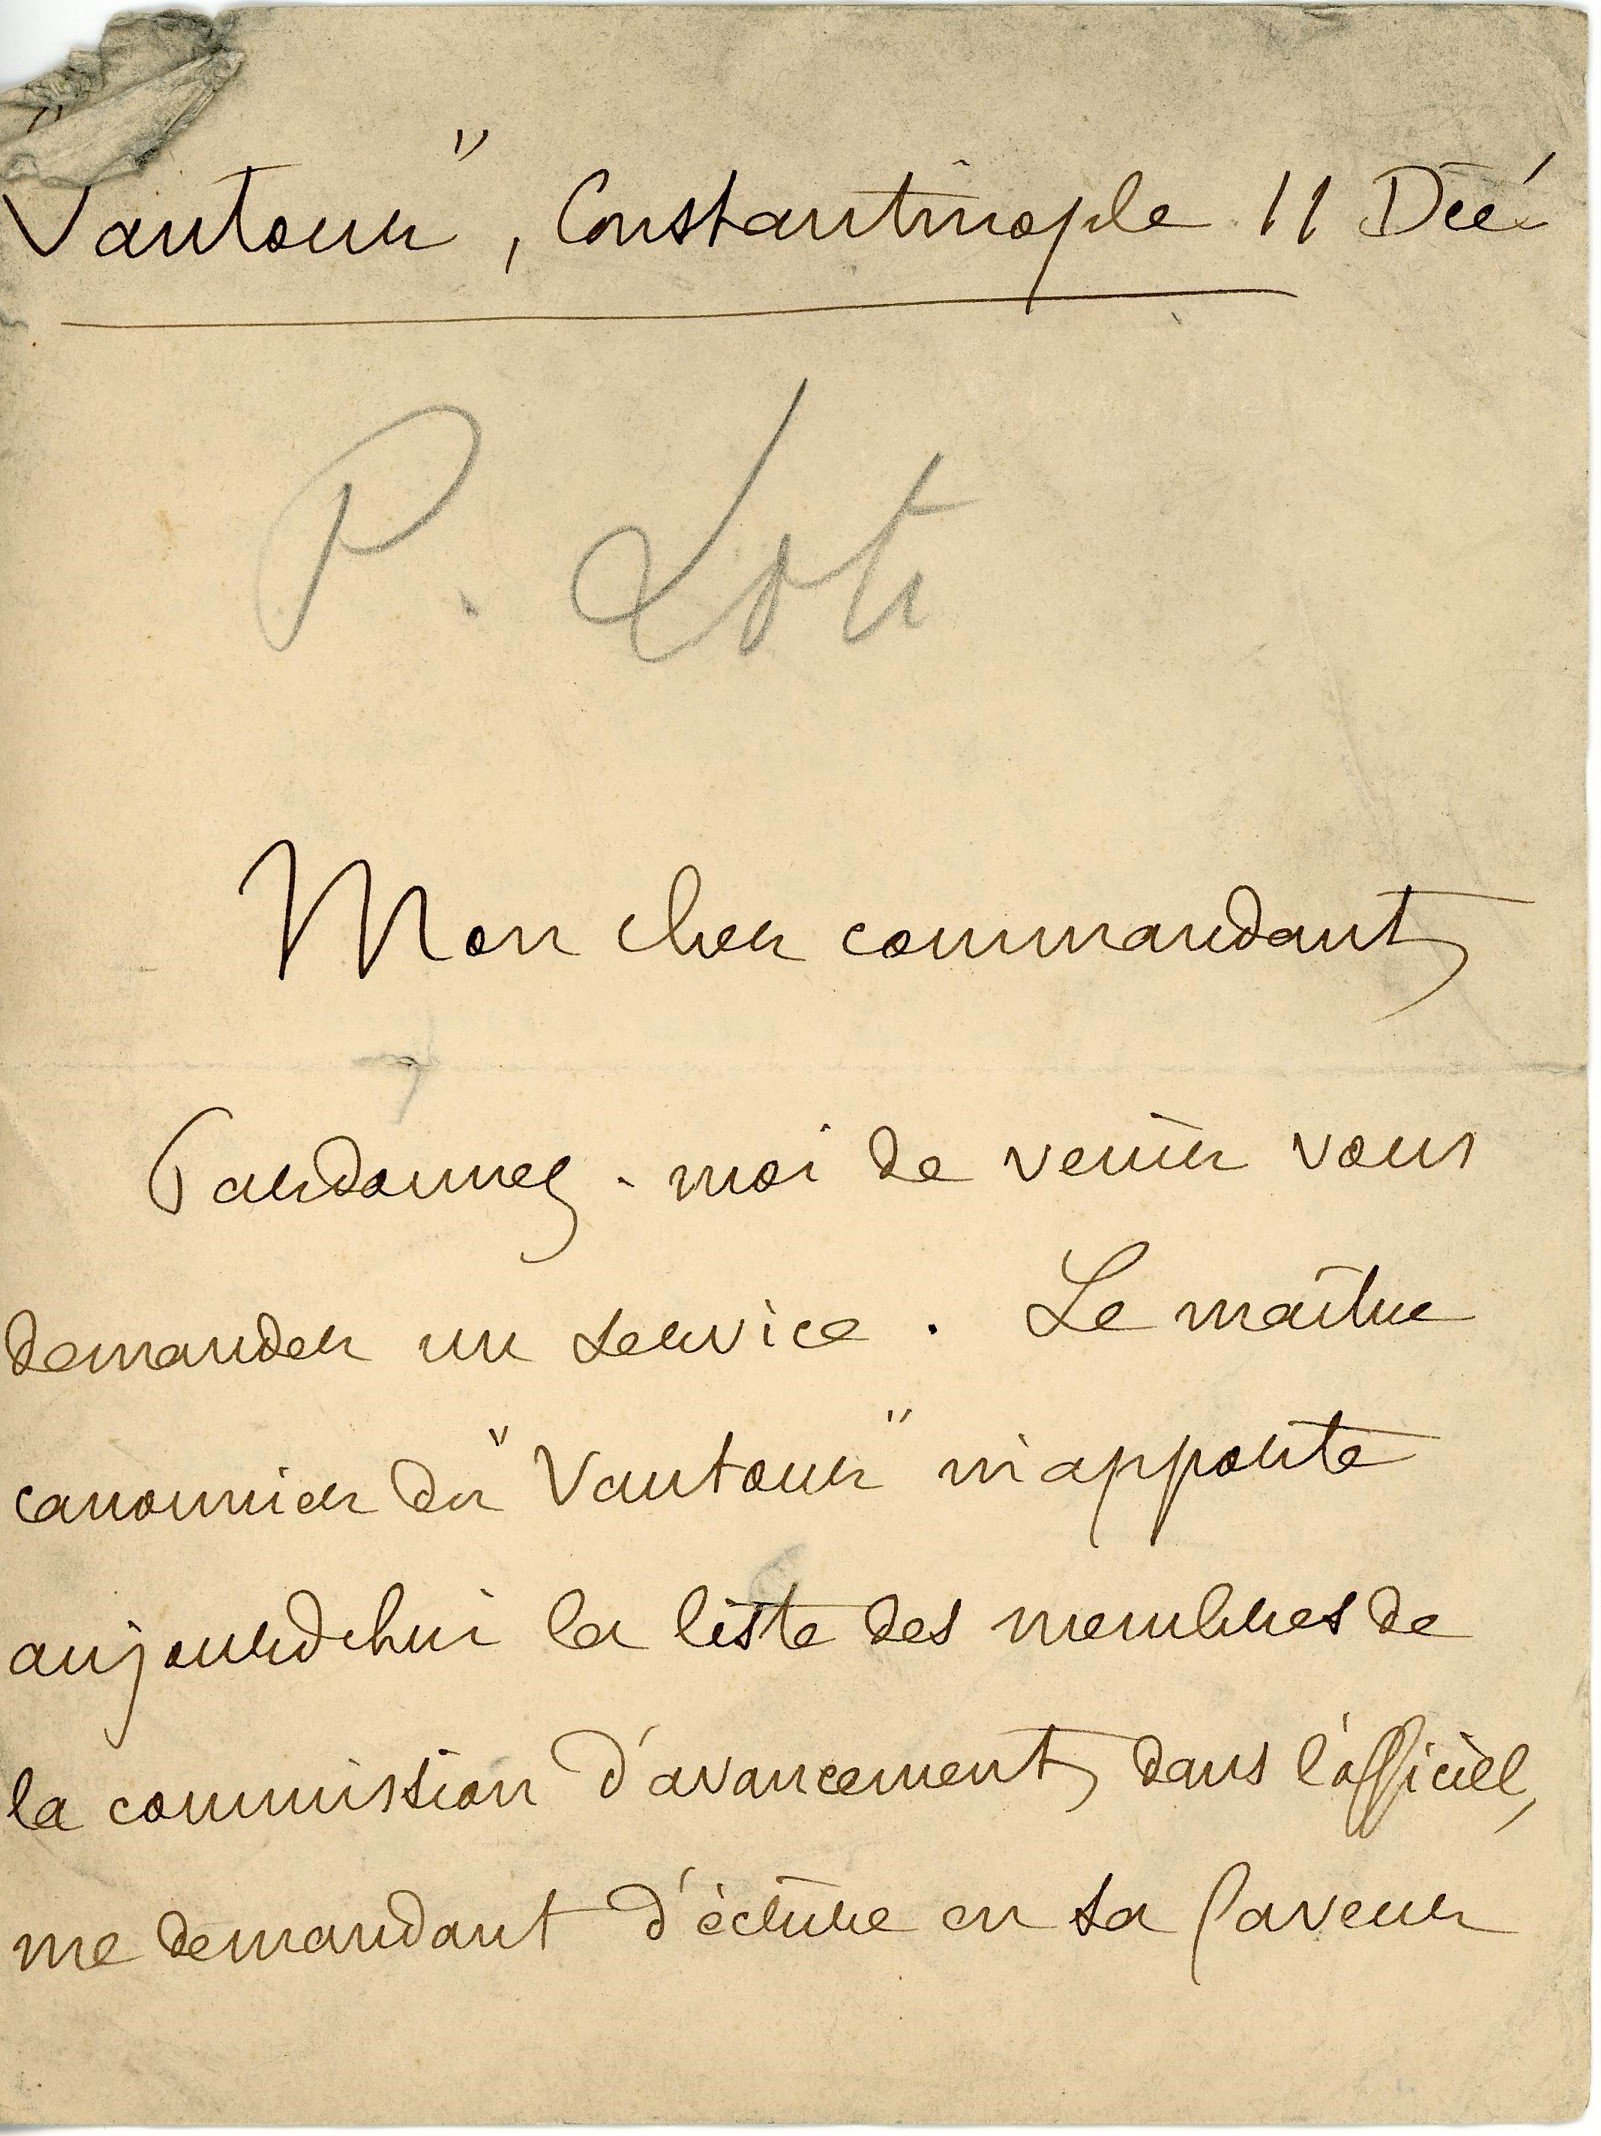 "Vautour", Constantinople 11 Déc
P. Loti
Mon cher commandant
Pardonnez-moi de venir vous
demander un service. Le maître
canonnier du "Vautour" m'apporte
aujourd'hui la liste des membres de
la commission d'avancement, dans l'officiel,
me demandant d'écrire en sa faveur